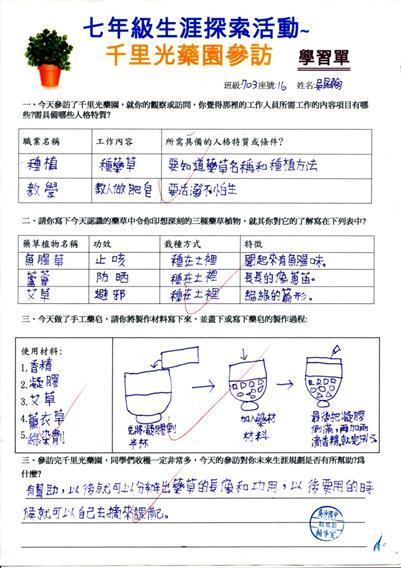 七年級生涯探索活動~
千里光藥園參訪 學習單
班級:703座號:16 姓名:吳
一、今天參訪了千里光藥園，就你的觀察或訪問，你覺得那裡的工作人員所需工作的內容項目有哪
些?需具備哪些人格特質?
職業名稱 工作內容 所需具備的人格特質或條件?
種植 種藥草 要知道藥草名稱和種植方法
教學 教人做肥皂 要活潑不怕生
二、請你寫下今天認識的藥草中令你印想深刻的三種藥草植物，就其你對它的了解寫在下列表中?
藥草植物名稱 功效 栽種方式 特徵
魚腥草 止咳 種在土裡 聞起來有魚腥味。
蘆薈 防晒 種在土裡 長長的像蔥笛。
艾草 避邪 種在土裡 綠綠的箭形。
三、今天做了手工藥皂，請你將製作材料寫下來，並畫下或寫下藥皂的製作過程:
使用材料:
1.香精
2.凝膠
3.艾草
4.薰衣草
5.綠染劑
先將凝膠倒
半杯
加入藥材
材料
最後把凝膠
倒滿，再加兩
滴香精，就完
三、參訪完千里光藥園，同學們收穫一定非常多，今天的參訪對你未來生涯規劃是否有所幫助?爲
什麼?
有幫助，以後就可以分辨出藥草的長像和功用，以後要用的時
候就可以自己去摘來